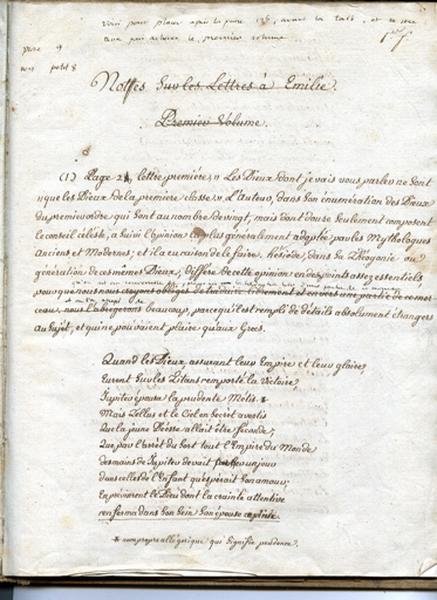 pour placer après la page 136, avant la table, et ce sera
ce qui achevera le premier volume
9
petit 8
Nottes sur les Lettres à Emilie.
Premier Volume.
(1) Page 21, lettre première, " Les Dieux dont je vais vous parler ne sont
" que les Dieux de la première classe. " L'auteur, dans son énumération des Dieux
du premier ordre qui sont au nombre de vingt, mais dont douze seulement composent
le conseil céleste, a suivi l'opinion la plus généralement adoptée par les Mythologues
Anciens et Modernes; et il a eu raison de le faire. Hésiode, dans sa Théogonie ou
génération de ces mêmes Dieux, diffère de cette opinion en des points assez essentiels
pour que nous soyons obligés de traduire librement et en vers une partie de ce mor-
ceau, nous l'abrégerons beaucoup, parce qu'il est rempli de détails absolument étrangers
au sujet, et qui ne pouvaient plaire qu'aux Grecs.
Quand les Dieux, assurant leur Empire et leur gloire,
Eurent sur les Titans remporté la Victoire,
Jupiter épousa la prudente Métis. *
Mais Tellus et le Ciel en secret avertis
Que la jeune Déesse allait être féconde;
Que par l'arrêt du sort tout l'Empire du Monde
des mains de Jupiter devait passer un jour
dans celles de l'Enfant qu'espérait son amour;
En prévinrent le Dieu dont la crainte attentive
renferma dans son sein son épouse captive.
* nom propre allégorique qui signifie prudence.